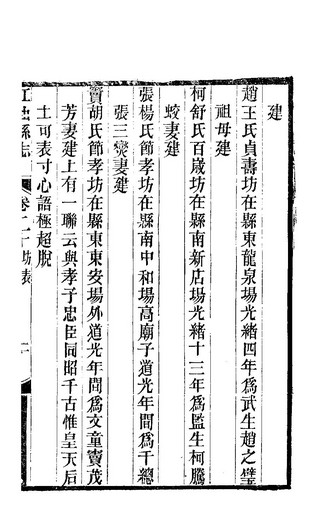 建
趙王氏貞壽坊在縣東龍泉場光緒四年為武生趙之璧
祖母建
柯舒氏百歲坊在縣南新店場光緒十三年為監生柯騰
蛟妻建
張楊氏節孝坊在縣南中和場高廟子道光年間為千總
張三燮妻建
竇胡氏節孝坊在縣東東安場外道光年間為文童竇茂
芳妻建上有一聯云與孝子忠臣同昭千古惟皇天后
土可表寸心語極超脫